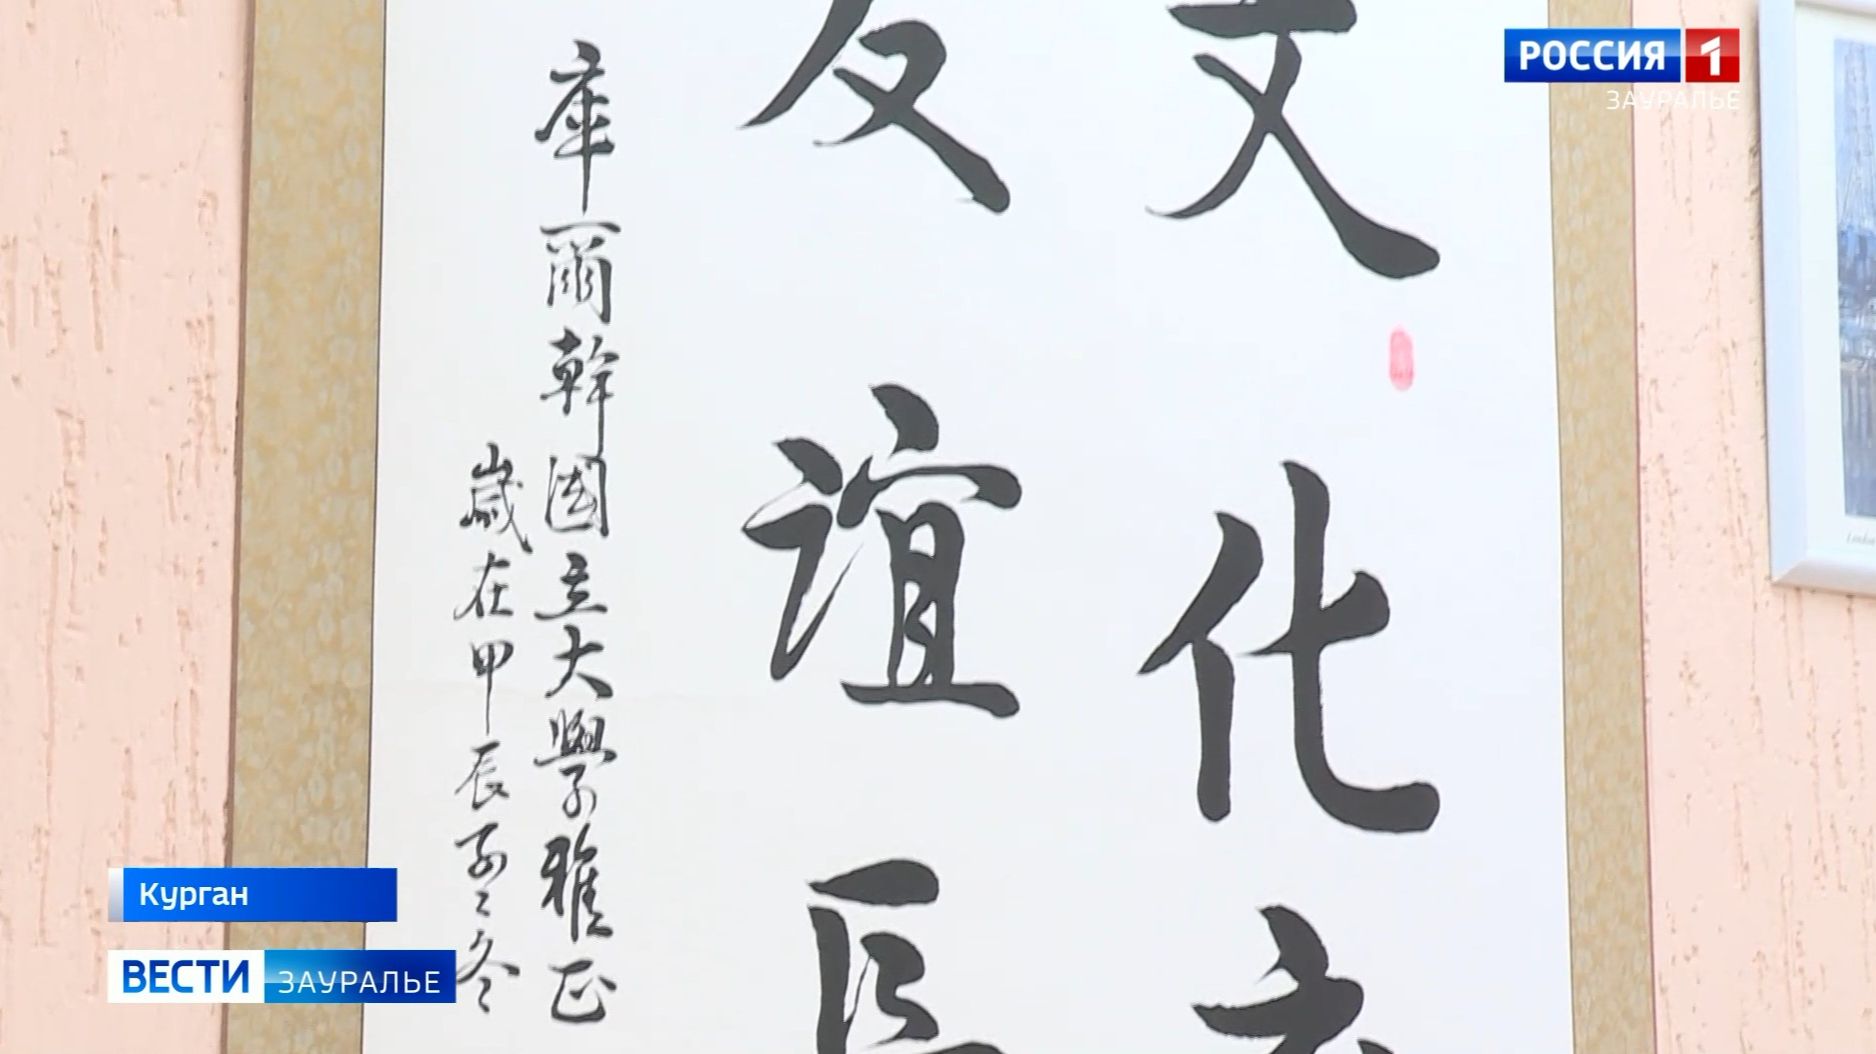 РОССИЯ 1
ЗАУРАЛЬЕ
文化
友谊長
庫爾幹國立大學雅正
歲在甲辰孟冬
London
Курган
ВЕСТИ ЗАУРАЛЬЕ